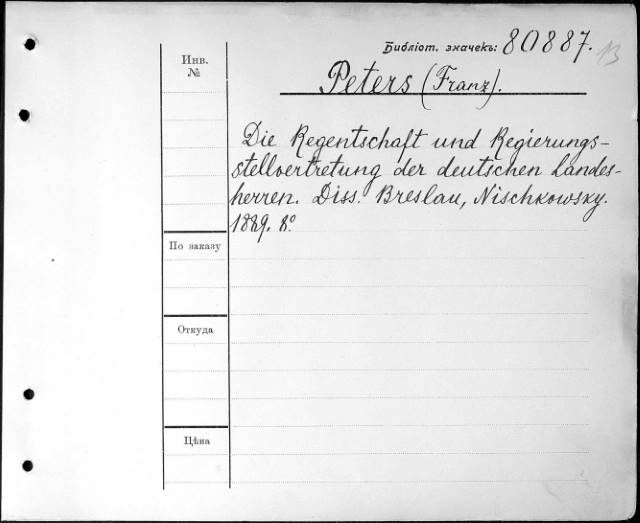 Библіот. значекъ: 80887. В
Инв.
№
Peters (Franz).
Die Regentschaft und Regierungs-
stellvertretung der deutschen Landes-
herren. Diss. Breslau, Nischkowsky.
1889. 8°.
По заказу
Откуда
Цѣна